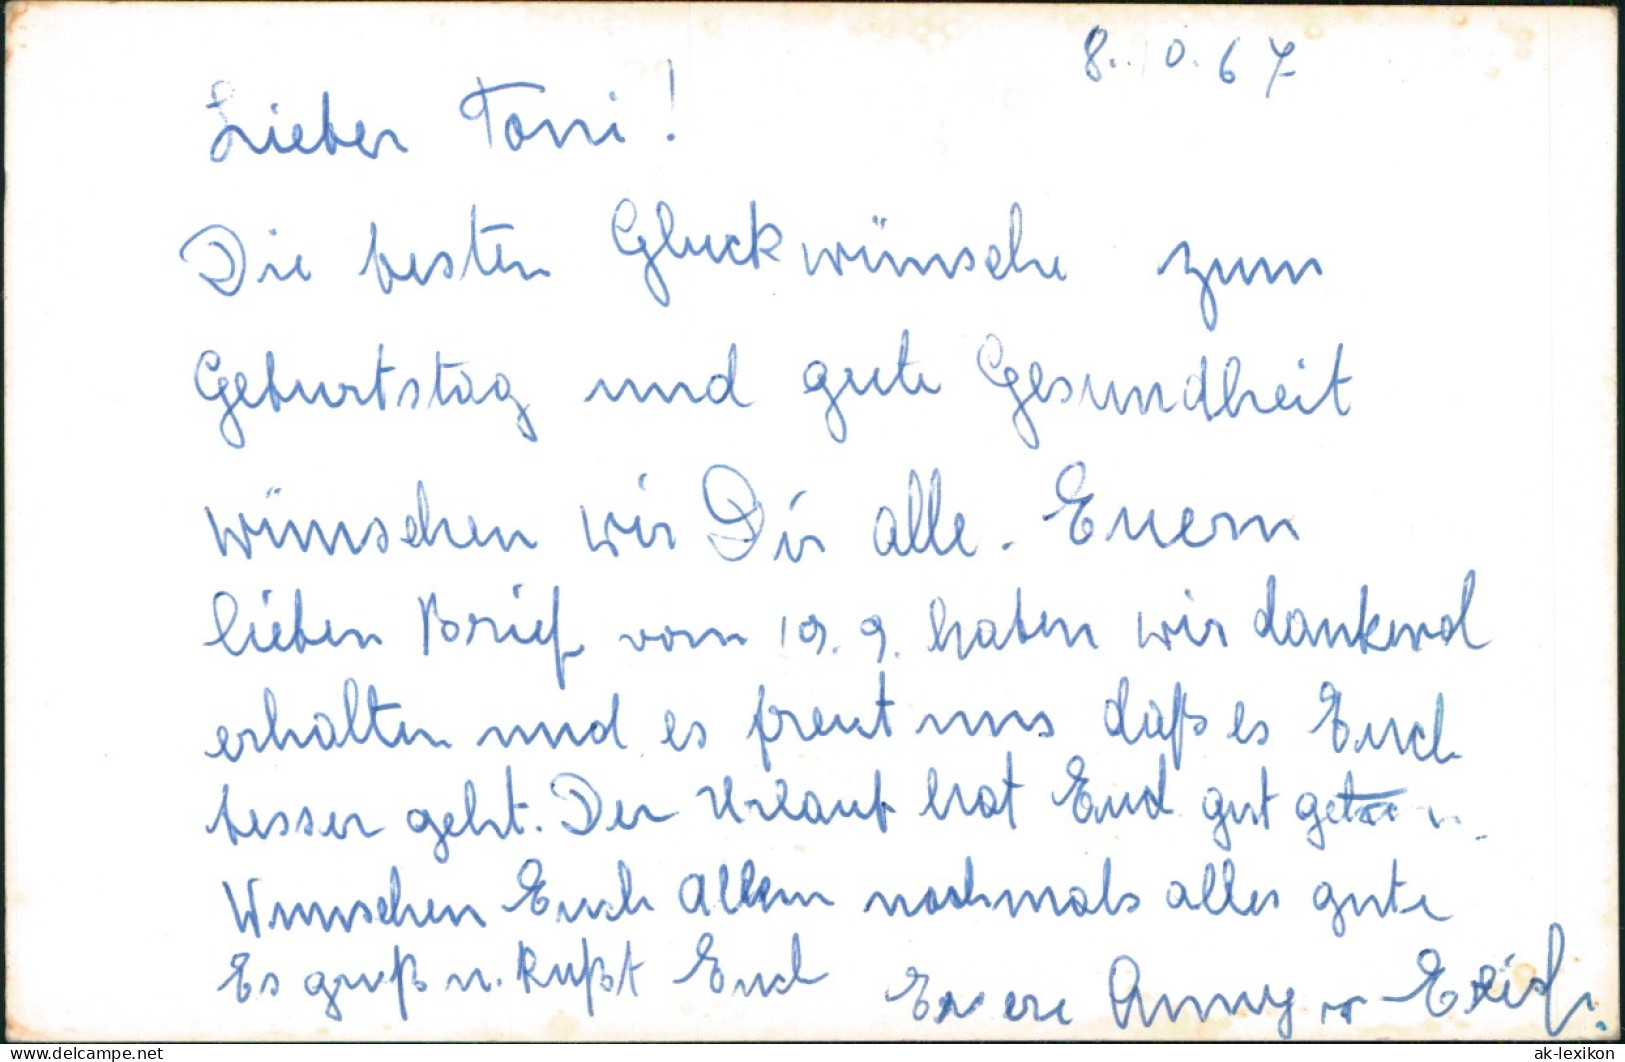 8. 10. 67
Lieber Toni!
Die besten Gluckwünsche zum
Geburtstag und gute Gesundheit
wünschen wir Dir alle. Euern
lieben Brief vom 19. 9. haben wir dankend
erhalten und es freut uns daß es Euch
besser geht. Der Urlaub hat Euch gut getan
Wunschen Euch Allen nochmals alles gute
Es gruß u. kußt Euch Euere Anny u Erich.
delcampe.net
ak-lexikon